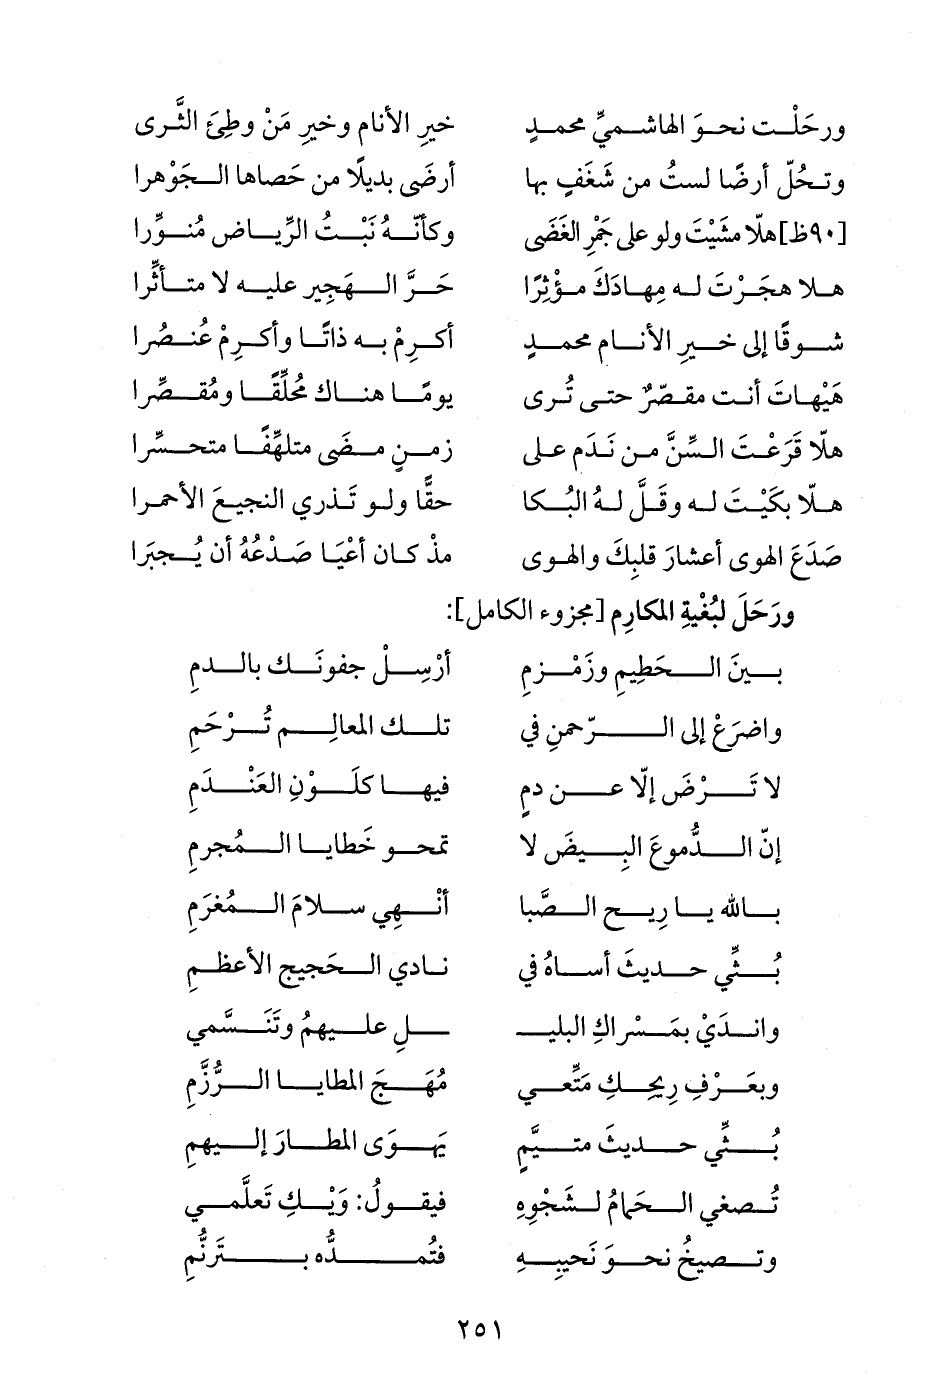 ورحَلْت نحوَ الهاشميِّ محمدٍ خيرِ الأنام وخيرِ مَنْ وطِئَ الثَّرى
وتحُلّ أرضًا لستُ من شَغَفٍ بها أرضَى بديلًا من حَصاها الجَوْهرا
[٩٠ظ] هلّا مشَيْتَ ولو على جَمْرِ الغَضَى وكأنّهُ نَبْتُ الرِّياض مُنوِّرا
هلا هجَرْتَ له مِهادَكَ مؤْثِرًا حَرَّ الهَجِيرِ عليه لا متأثِّرا
شوقًا إلى خيرِ الأنام محمدٍ أكرِمْ به ذاتًا وأكرِمْ عُنصُرا
هَيْهاتَ أنت مقصّرٌ حتى تُرى يومًا هناك مُحلِّقًا ومُقصِّرا
هلّا قَرَعْتَ السِّنَّ من نَدَم على زمنٍ مضَى متلهِّفًا متحسِّرا
هلّا بكَيْتَ له وقَلَّ لهُ البُكا حقًّا ولو تَذري النجيعَ الأحمرا
صَدَعَ الهوى أعشارَ قلبِكَ والهوى مذْ كان أعْيَا صَدْعُهُ أن يُجبَرا
ورَحَلَ لبُغْيةِ المكارِم [مجزوء الكامل]:
بينَ الحَطِيمِ وزَمْزمِ أرْسِلْ جفونَك بالدمِ
واضرَعْ إلى الرّحمنِ في تلك المعالِم تُرْحَمِ
لا تَرْضَ إلّا عن دمٍ فيها كلَوْنِ العَنْدَمِ
إنّ الدُّموعَ البِيضَ لا تمحو خَطايا المُجرمِ
بالله يا رِيح الصَّبا أنْهِي سلامَ المُغرَمِ
بُثِّي حديثَ أساهُ في نادي الحَجيج الأعظمِ
واندَيْ بمَسْراكِ البليـ ـلِ عليهمُ وتَنَسَّمي
وبعَرْفِ رِيحِكِ مَتِّعي مُهَجَ المطايا الرُّزَّمِ
بُثِّي حديثَ متيَّمٍ يَهوَى المطارَ إليهمِ
تُصغي الحمامُ لشَجْوِهِ فيقولُ: وَيْكِ تَعلَّمي
وتصيخُ نحوَ نَحيبِهِ فتُمدُّه بتَرنُّمِ
٢٥١